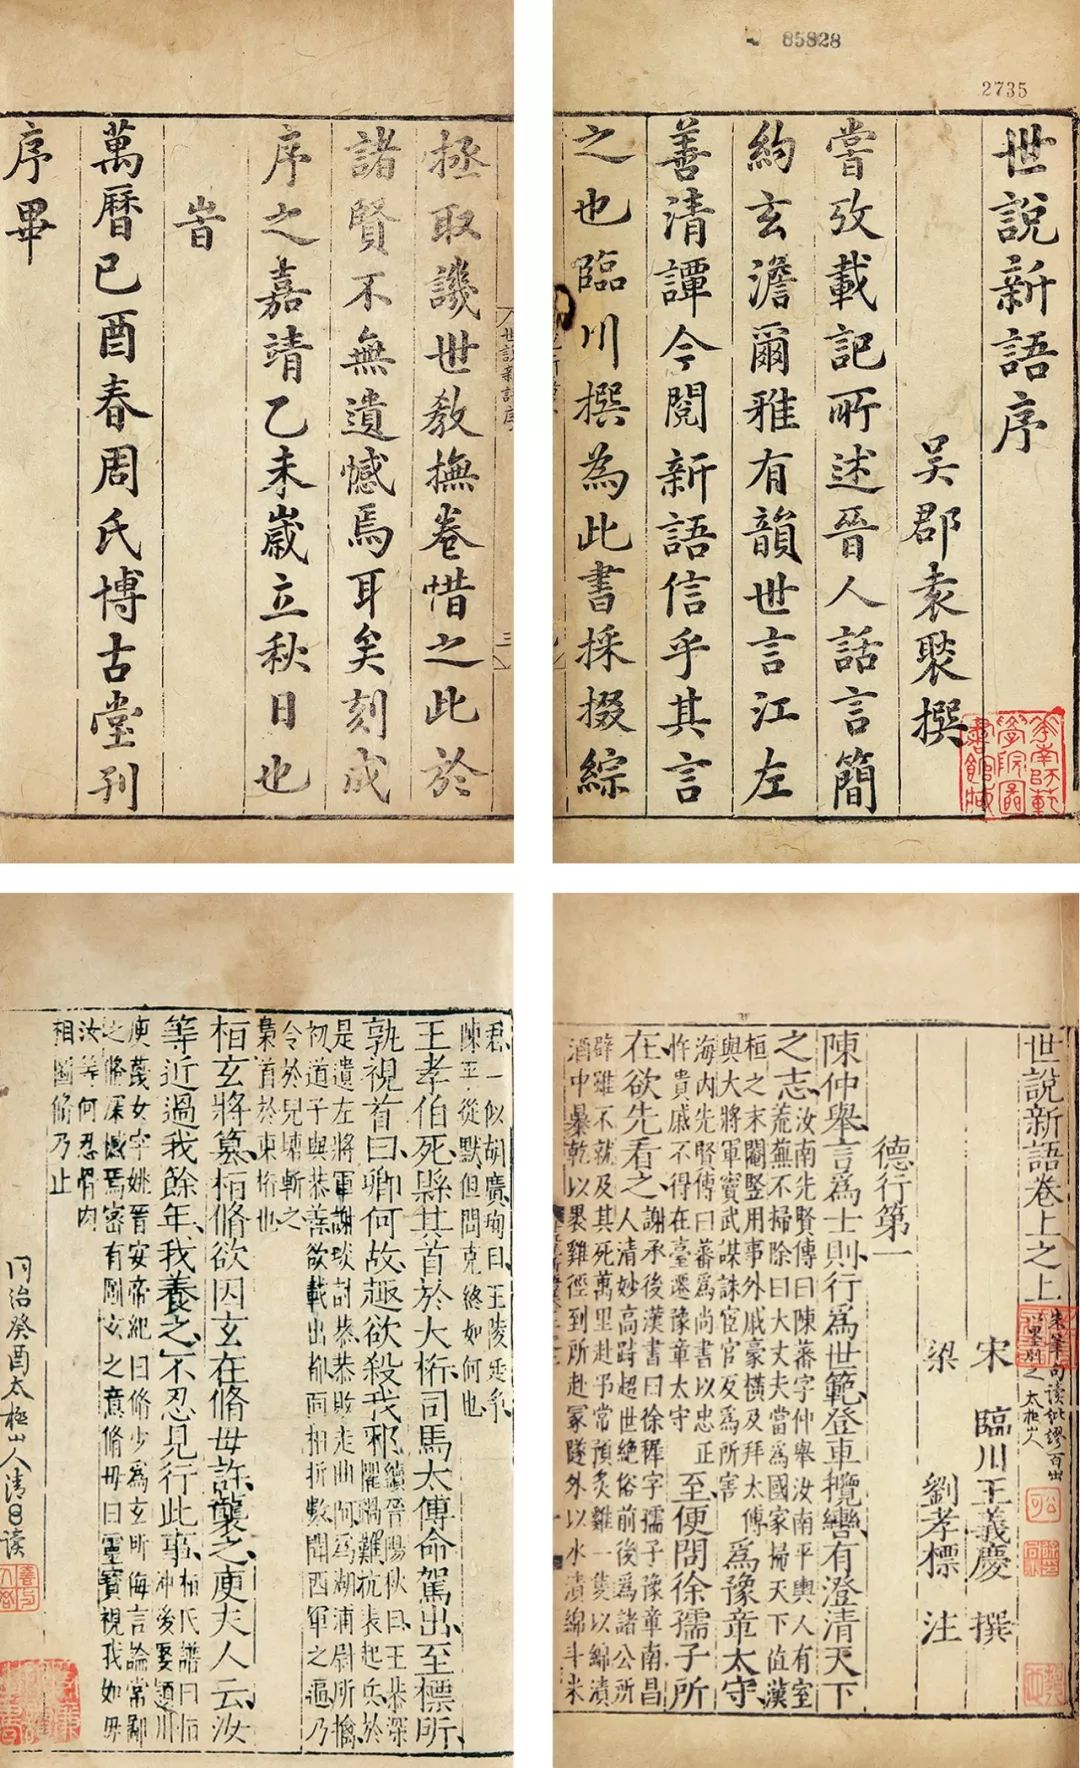 85828
2735
世說新語序
吳郡袁褧撰
嘗攷載記所述晉人話言簡
約玄澹爾雅有韻世言江左
善清譚今閱新語信乎其言
之也臨川撰為此書採掇綜
華南師範學院圖書館藏
世說新語序 三
拯取譏世教撫卷惜之此於
諸賢不無遺憾焉耳矣刻成
序之嘉靖乙未歲立秋日也
旹
萬曆己酉春周氏博古堂刊
序畢
世說新語卷上之上
朱筆句讀紕謬百出
以墨別之 太極山人
宋 臨川王義慶 撰
梁 劉孝標 注
德行第一
陳仲舉言為士則行為世範登車攬轡有澄清天下
之志
汝南先賢傳曰陳蕃字仲舉汝南平輿人有室
荒蕪不掃除曰大丈夫當為國家掃天下值漢
桓之末閹豎用事外戚豪橫及拜太傅
與大將軍竇武謀誅宦官反為所害
為豫章太守
海內先賢傳曰蕃為尚書以忠正
忤貴戚不得在臺遷豫章太守
至便問徐孺子所
在欲先看之
謝承後漢書曰徐穉字孺子豫章南昌
人清妙高跱超世絕俗前後為諸公所
辟雖不就及其死萬里赴弔常預炙雞一隻以綿漬
酒中暴乾以裹雞徑到所赴冢隧外以水漬綿斗米
君一似胡廣珣曰王陵廷爭
陳平從默但問克終如何也
王孝伯死縣其首於大桁司馬太傅命駕出至標所
孰視首曰卿何故趣欲殺我邪
續晉陽秋曰王恭深
懼禍難抗表起兵於
是遣左將軍謝琰討恭恭敗走曲阿為湖浦尉所擒
初道子與恭善欲載出都面相折數聞西軍之逼乃
令於兒塘斬之
梟首於東桁也
桓玄將篡桓脩欲因玄在脩母許襲之庾夫人云汝
等近過我餘年我養之不忍見行此事
桓氏譜曰桓
沖後娶潁川
庾蔑女字姚晉安帝紀曰脩少為玄所侮言論常鄙
之脩深憾焉密有圖玄之意脩母曰靈寶視我如母
汝等何忍骨肉
相圖脩乃止
同治癸酉太極山人清日讀